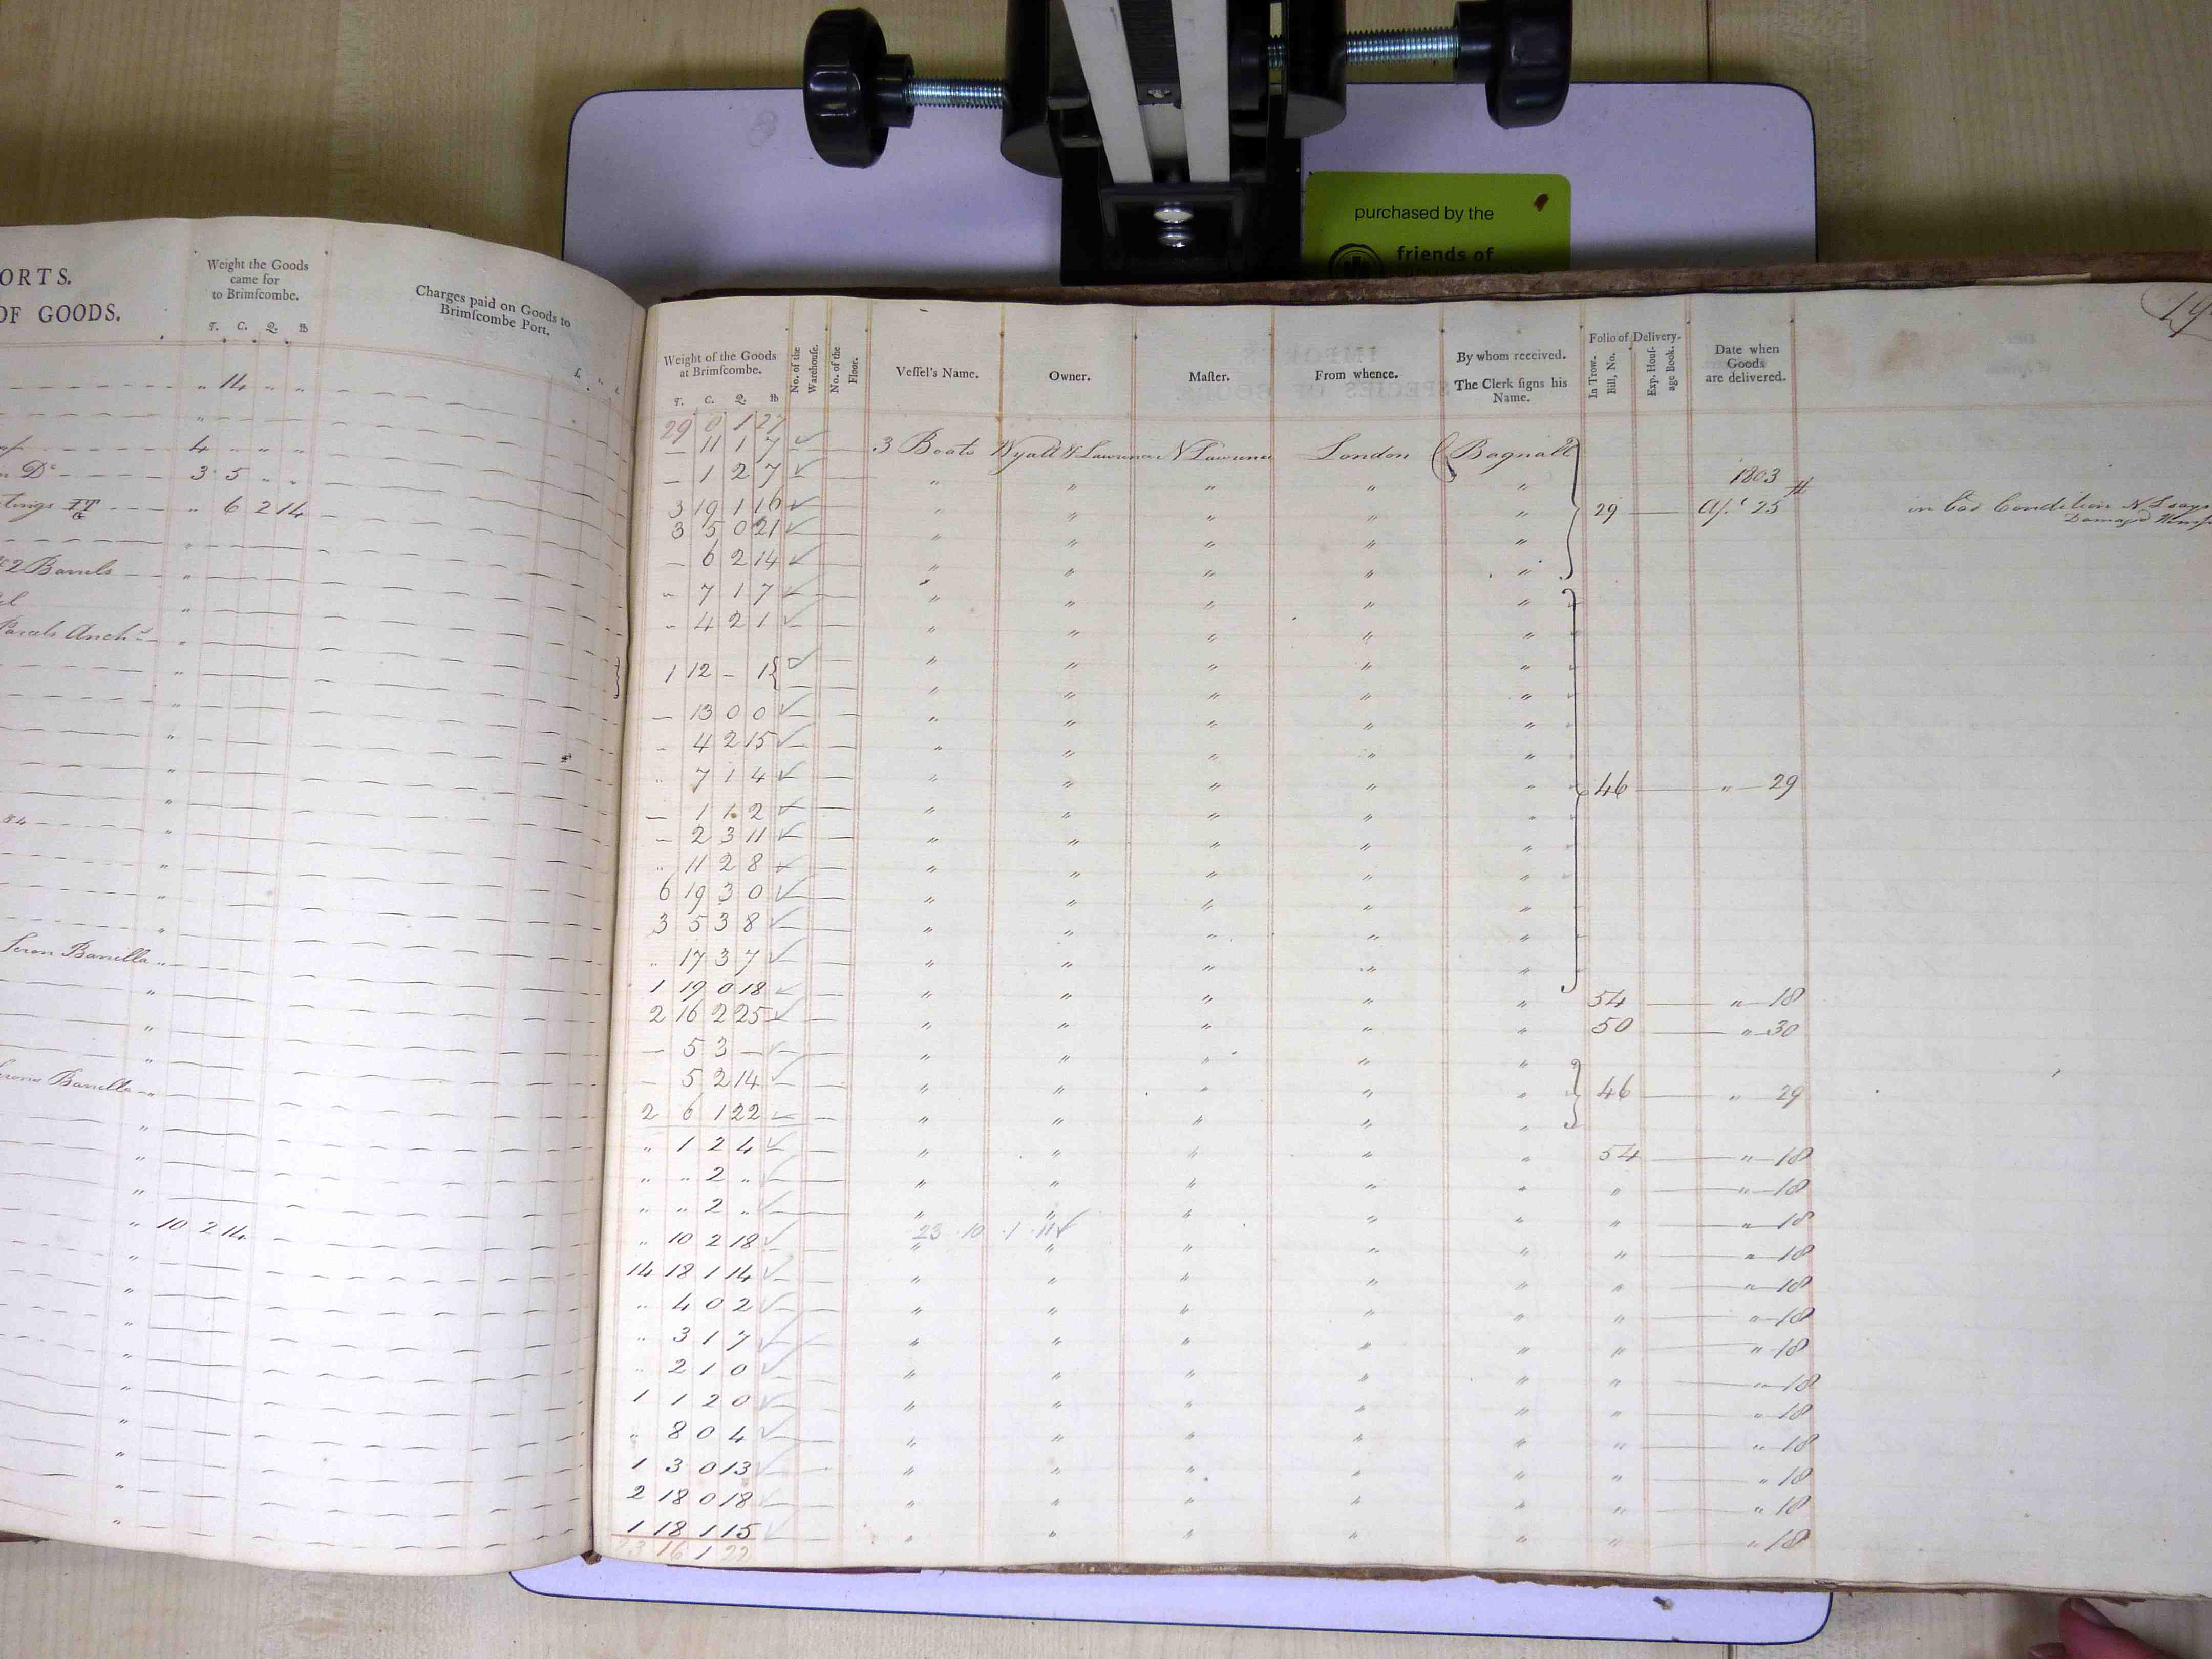 purchased by the
friends of
ORTS.
OF GOODS.
Weight the Goods
came for
to Brimſcombe.
T. C. Q. lb
Charges paid on Goods to
Brimſcombe Port.
" 14 " "
"
4 " " "
n Do 3 5 " "
tings TT " 6 2 14
2 Barrels "
Parcels Anchs
54
Seron Barrilla "
erons Barrilla "
" 10 2 14
Weight of the Goods
at Brimſcombe.
T. C. Q. lb
No. of the
Warehouſe.
No. of the
Floor.
Veſſel's Name.
Owner.
Maſter.
From whence.
By whom received.
The Clerk ſigns his
Name.
Folio of Delivery.
In Trow.
Bill, No.
Exp. Houſ-
age Book.
Date when
Goods
are delivered.
29 0 1 27
— 11 1 7 3 Boats Wyatt & Lawrence N Lawrence London Bagnall
— 1 2 7 " " " " " 1803
3 19 1 16 " " " " " 29 — Apl 25th in bad Condition N L says
Damagd
3 5 0 21 " " " " "
— 6 2 14 " " " " "
" 7 1 7 " " " " "
" 4 2 1 " " " " "
1 12 - 1 " " " " "
— 13 0 0 " " " " "
" 4 2 15 " " " " "
" 7 1 4 " " " " " 46 — " 29
— 1 1 2 " " " " "
— 2 3 11 " " " " "
" 11 2 8 " " " " "
6 19 3 0 " " " " "
3 5 3 8 " " " " "
" 17 3 7 " " " " "
1 19 0 18 " " " " " 54 — " 18
2 16 2 25 " " " " " 50 — " 30
— 5 3 — " " " " "
— 5 2 14 " " " " " 46 — " 29
2 6 1 22 " " " " "
" 1 2 4 " " " " " 54 — " 18
" " 2 " " " " " " " — " 18
" " 2 " " " " " " " — " 18
23 10 1 11
" 10 2 18 " " " " " " — " 18
14 18 1 14 " " " " " " — " 18
" 4 0 2 " " " " " " — " 18
" 3 1 7 " " " " " " — " 18
" 2 1 0 " " " " " " — " 18
1 1 2 0 " " " " " " — " 18
" 8 0 4 " " " " " " — " 18
1 3 0 13 " " " " " " — " 18
2 18 0 18 " " " " " " — " 18
1 18 1 15 " " " " " " " 18
23 16 1 22